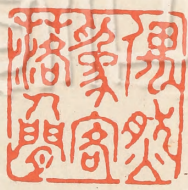 偶然
爲客
落人間